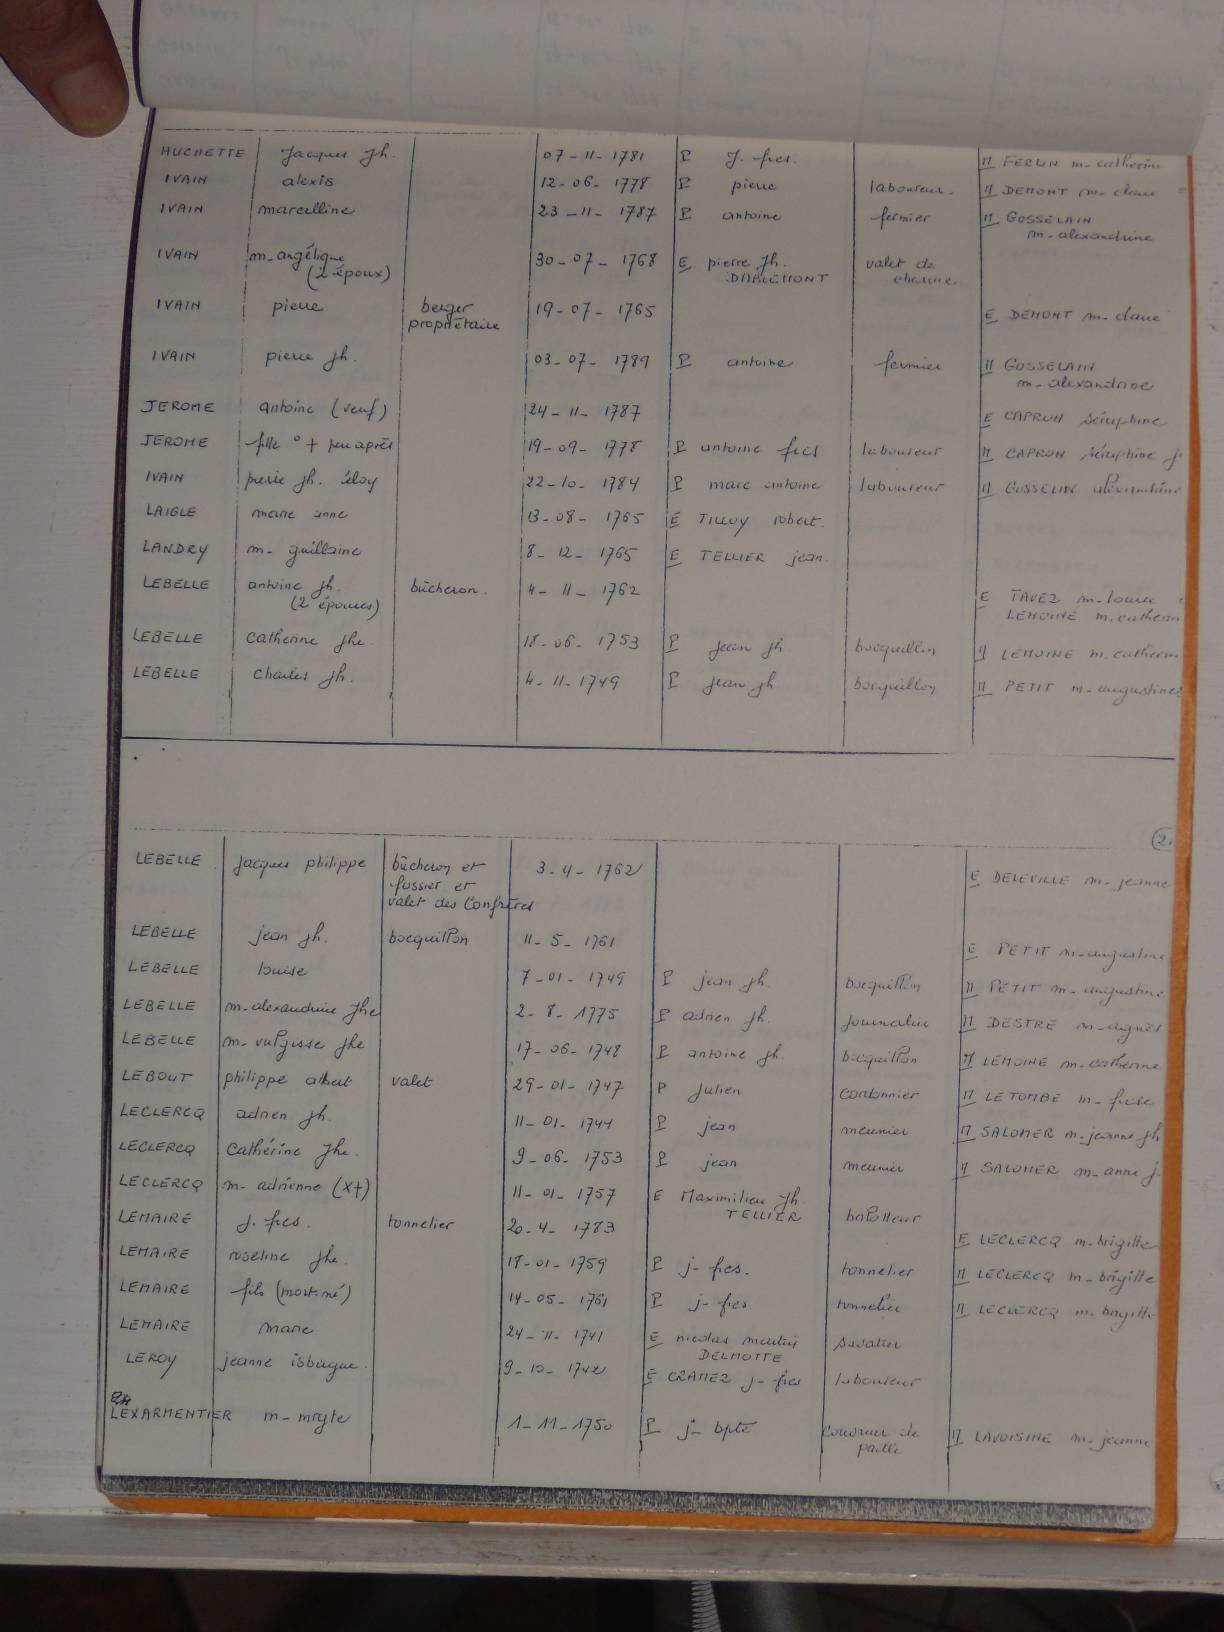 HUCHETTE Jacques Jh. 07-11-1781 P J. fcs. M FERUN m-catherin
IVAIN alexis 12-06-1778 P pierre laboureur. M DEMONT m-claue
IVAIN marcelline 23-11-1787 P antoine fermier M GOSSELAIN
m-alexandrine
IVAIN m-angélique 30-07-1768 E pierre Jh. valet de
(2 époux) DABLEMONT charrue
IVAIN pierre berger 19-07-1765 E DEMONT m-claue
propriétaire
IVAIN pierre Jh. 03-07-1789 P antoine fermier M GOSSELAIN
m-alexandrine
JEROME antoine (veuf) 24-11-1787 E CAPRON séraphine
JEROME fille ° + peu après 19-09-1778 P antoine fcs laboureur M CAPRON séraphine J.
IVAIN pierre Jh. éloy 22-10-1784 P marc antoine laboureur M GOSSELIN alexandrine
LAIGLE marie anne 13-08-1765 E TILLOY robert.
LANDRY m-guillaine 8-12-1765 E TELLIER jean
LEBELLE antoine Jh. bûcheron. 4-11-1762 E TAVEZ m-louise
(2 épouses) LEMOINE m.catherin
LEBELLE catherine Jhe. 18-06-1753 P jean Jh bocquillon M LEMOINE m.catherin
LEBELLE charles Jh. 4-11-1749 P jean Jh bocquillon M PETIT m-augustine
2.
LEBELLE jacques philippe bûcheron et 3-4-1762 E DELEVILLE m-jeanne
fossier et
valet des Confrères
LEBELLE jean Jh. bocquillon 11-5-1761 E PETIT m-augustine
LEBELLE louise 7-01-1749 P jean Jh. bocquillon M PETIT m-augustine
LEBELLE m-alexandrine Jhe 2-8-1775 P adrien Jh. journalier M DESTRE m-agnès
LEBELLE m-vulgisse Jhe 17-06-1748 P antoine Jh. bocquillon M LEMOINE m-catherine
LEBOUT philippe albert valet 29-01-1747 P Julien cordonnier M LETOMBE m-fcse
LECLERCQ adrien Jh. 11-01-1744 P jean meunier M SALOMER m-jeanne Jh
LECLERCQ catherine Jhe. 9-06-1753 P jean meunier M SALOMER m-anne j.
LECLERCQ m-adrienne (X+) 11-01-1757 E Maximilien Jh.
TELLIER
LEMAIRE j. fcs. tonnelier 20-4-1783 E LECLERCQ m-brigitte
LEMAIRE roseline Jhe. 18-01-1759 P j-fcs. tonnelier M LECLERCQ m-brigitte
LEMAIRE fils (mort né) 14-05-1761 P j-fcs tonnelier M LECLERCQ m-brigitte
LEMAIRE marie 24-11-1741 E nicolas martin savatier
DELMOTTE
LEROY jeanne isbergue. 9-10-1742 E CRAMEZ j-fcs laboureur
LEXARMENTIER m-mryte 1-11-1750 P j-bpte couvreur de M LAVOISINE m-jeanne
paille